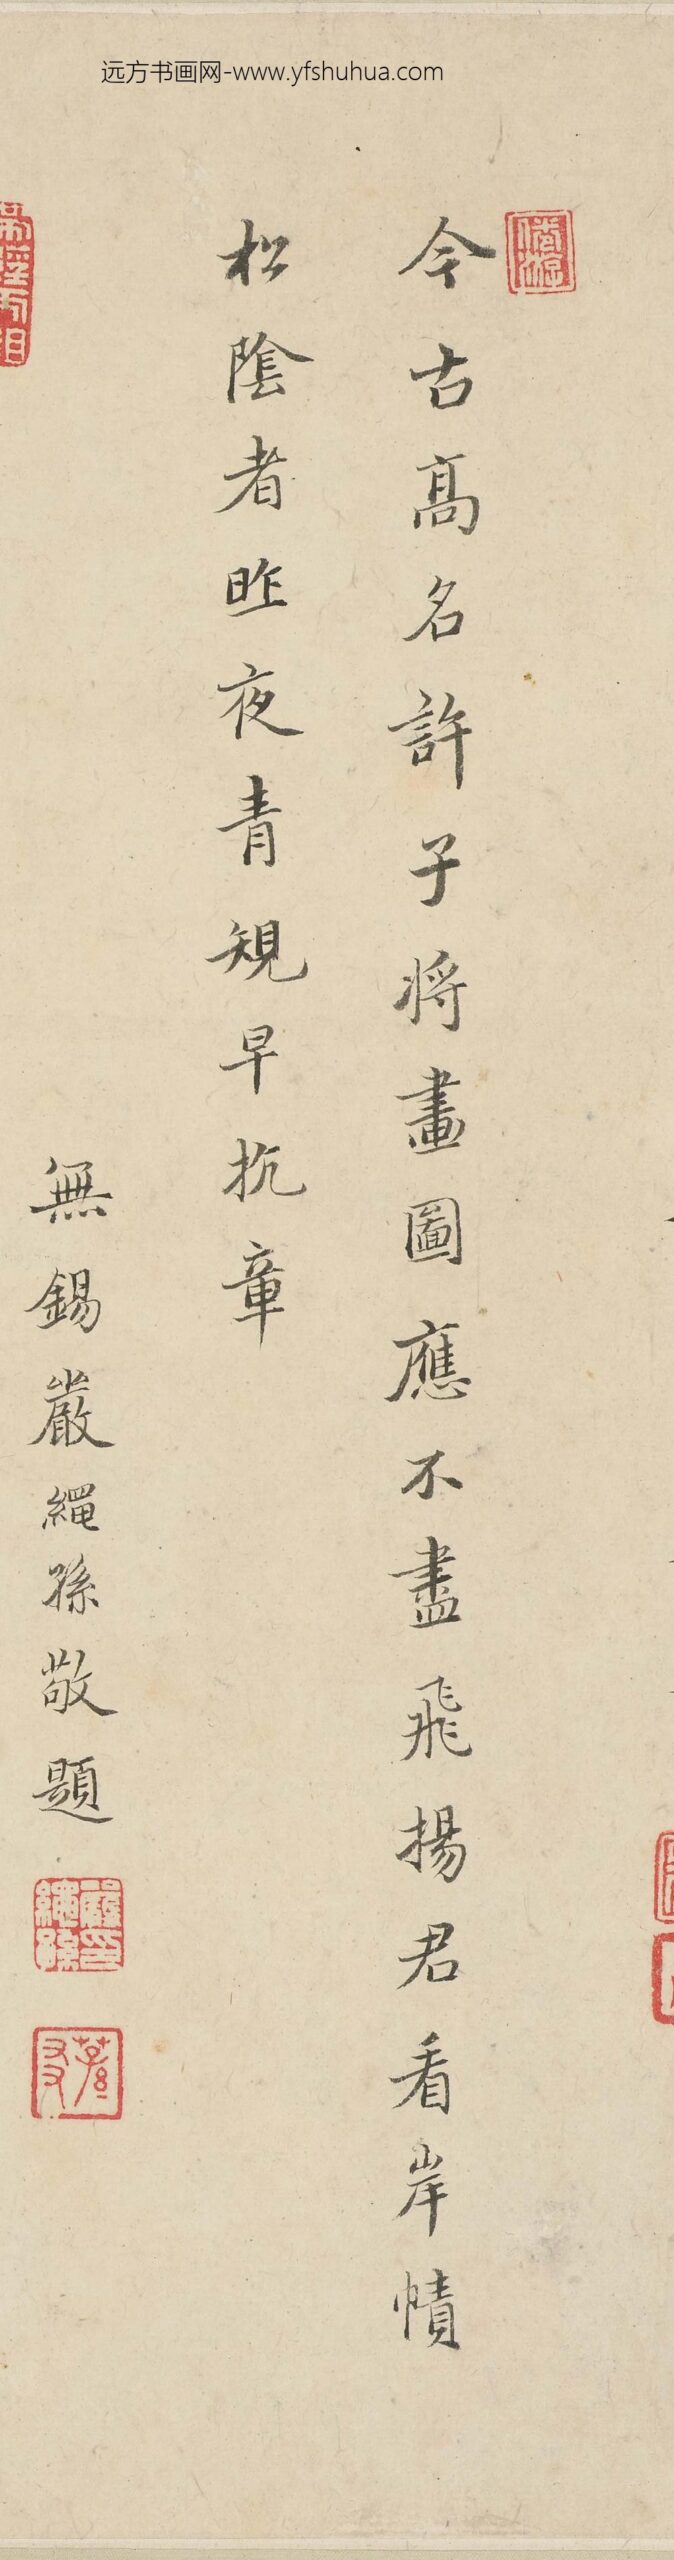 远方书画网-www.yfshuhua.com
今古高名許子將畫圖應不盡飛揚君看岸幘
松陰者昨夜青規早抗章
無錫嚴繩孫敬題
嚴印繩孫
蓀友